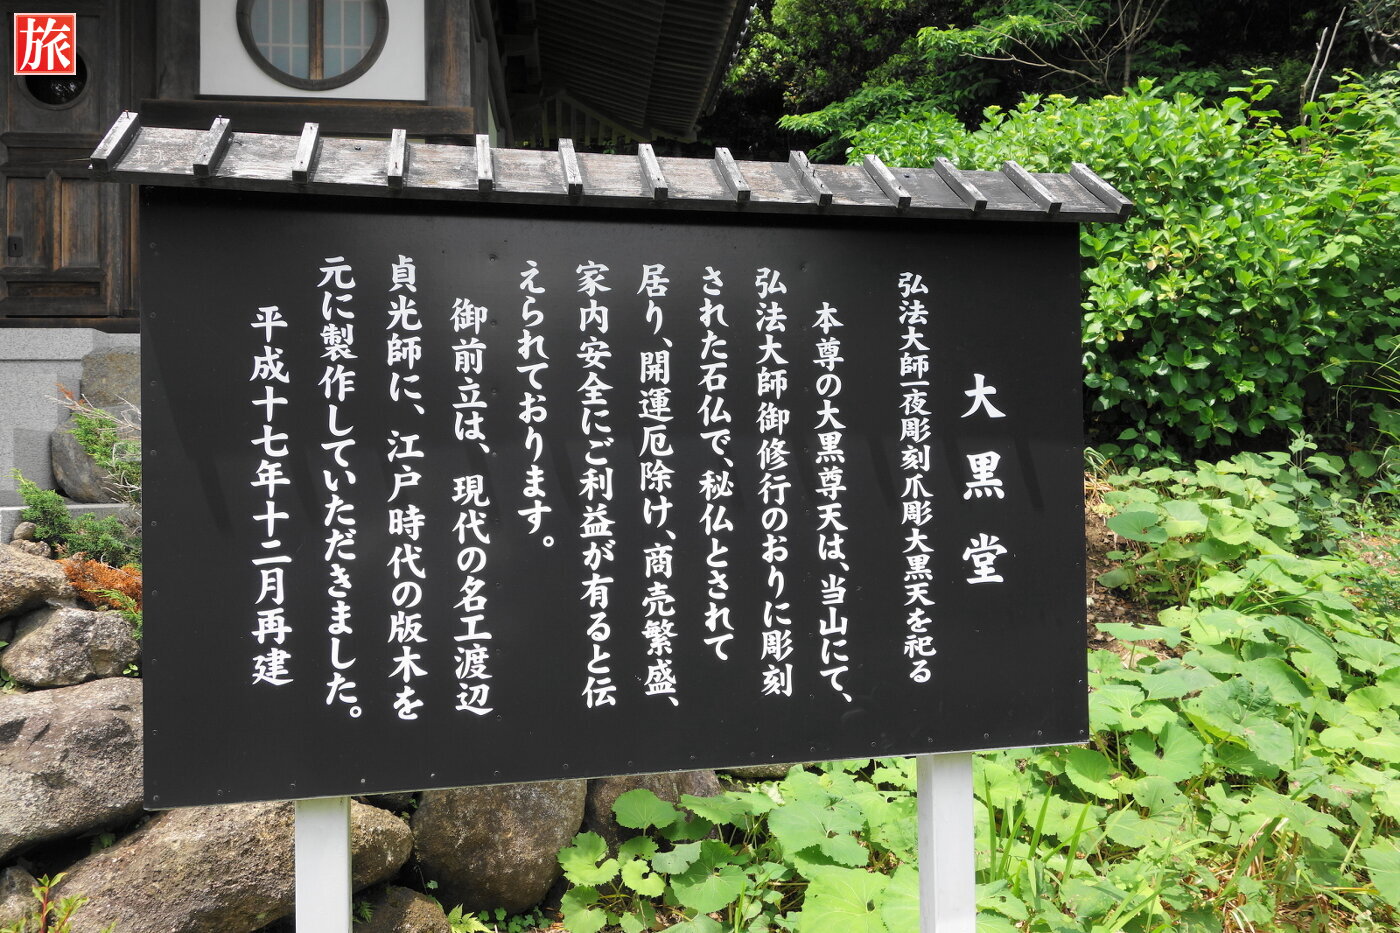 旅
大黒堂
弘法大師一夜彫刻爪彫大黒天を祀る
本尊の大黒尊天は、当山にて、
弘法大師御修行のおりに彫刻
された石仏で、秘仏とされて
居り、開運厄除け、商売繁盛、
家内安全にご利益が有ると伝
えられております。
御前立は、現代の名工渡辺
貞光師に、江戸時代の版木を
元に製作していただきました。
平成十七年十二月再建